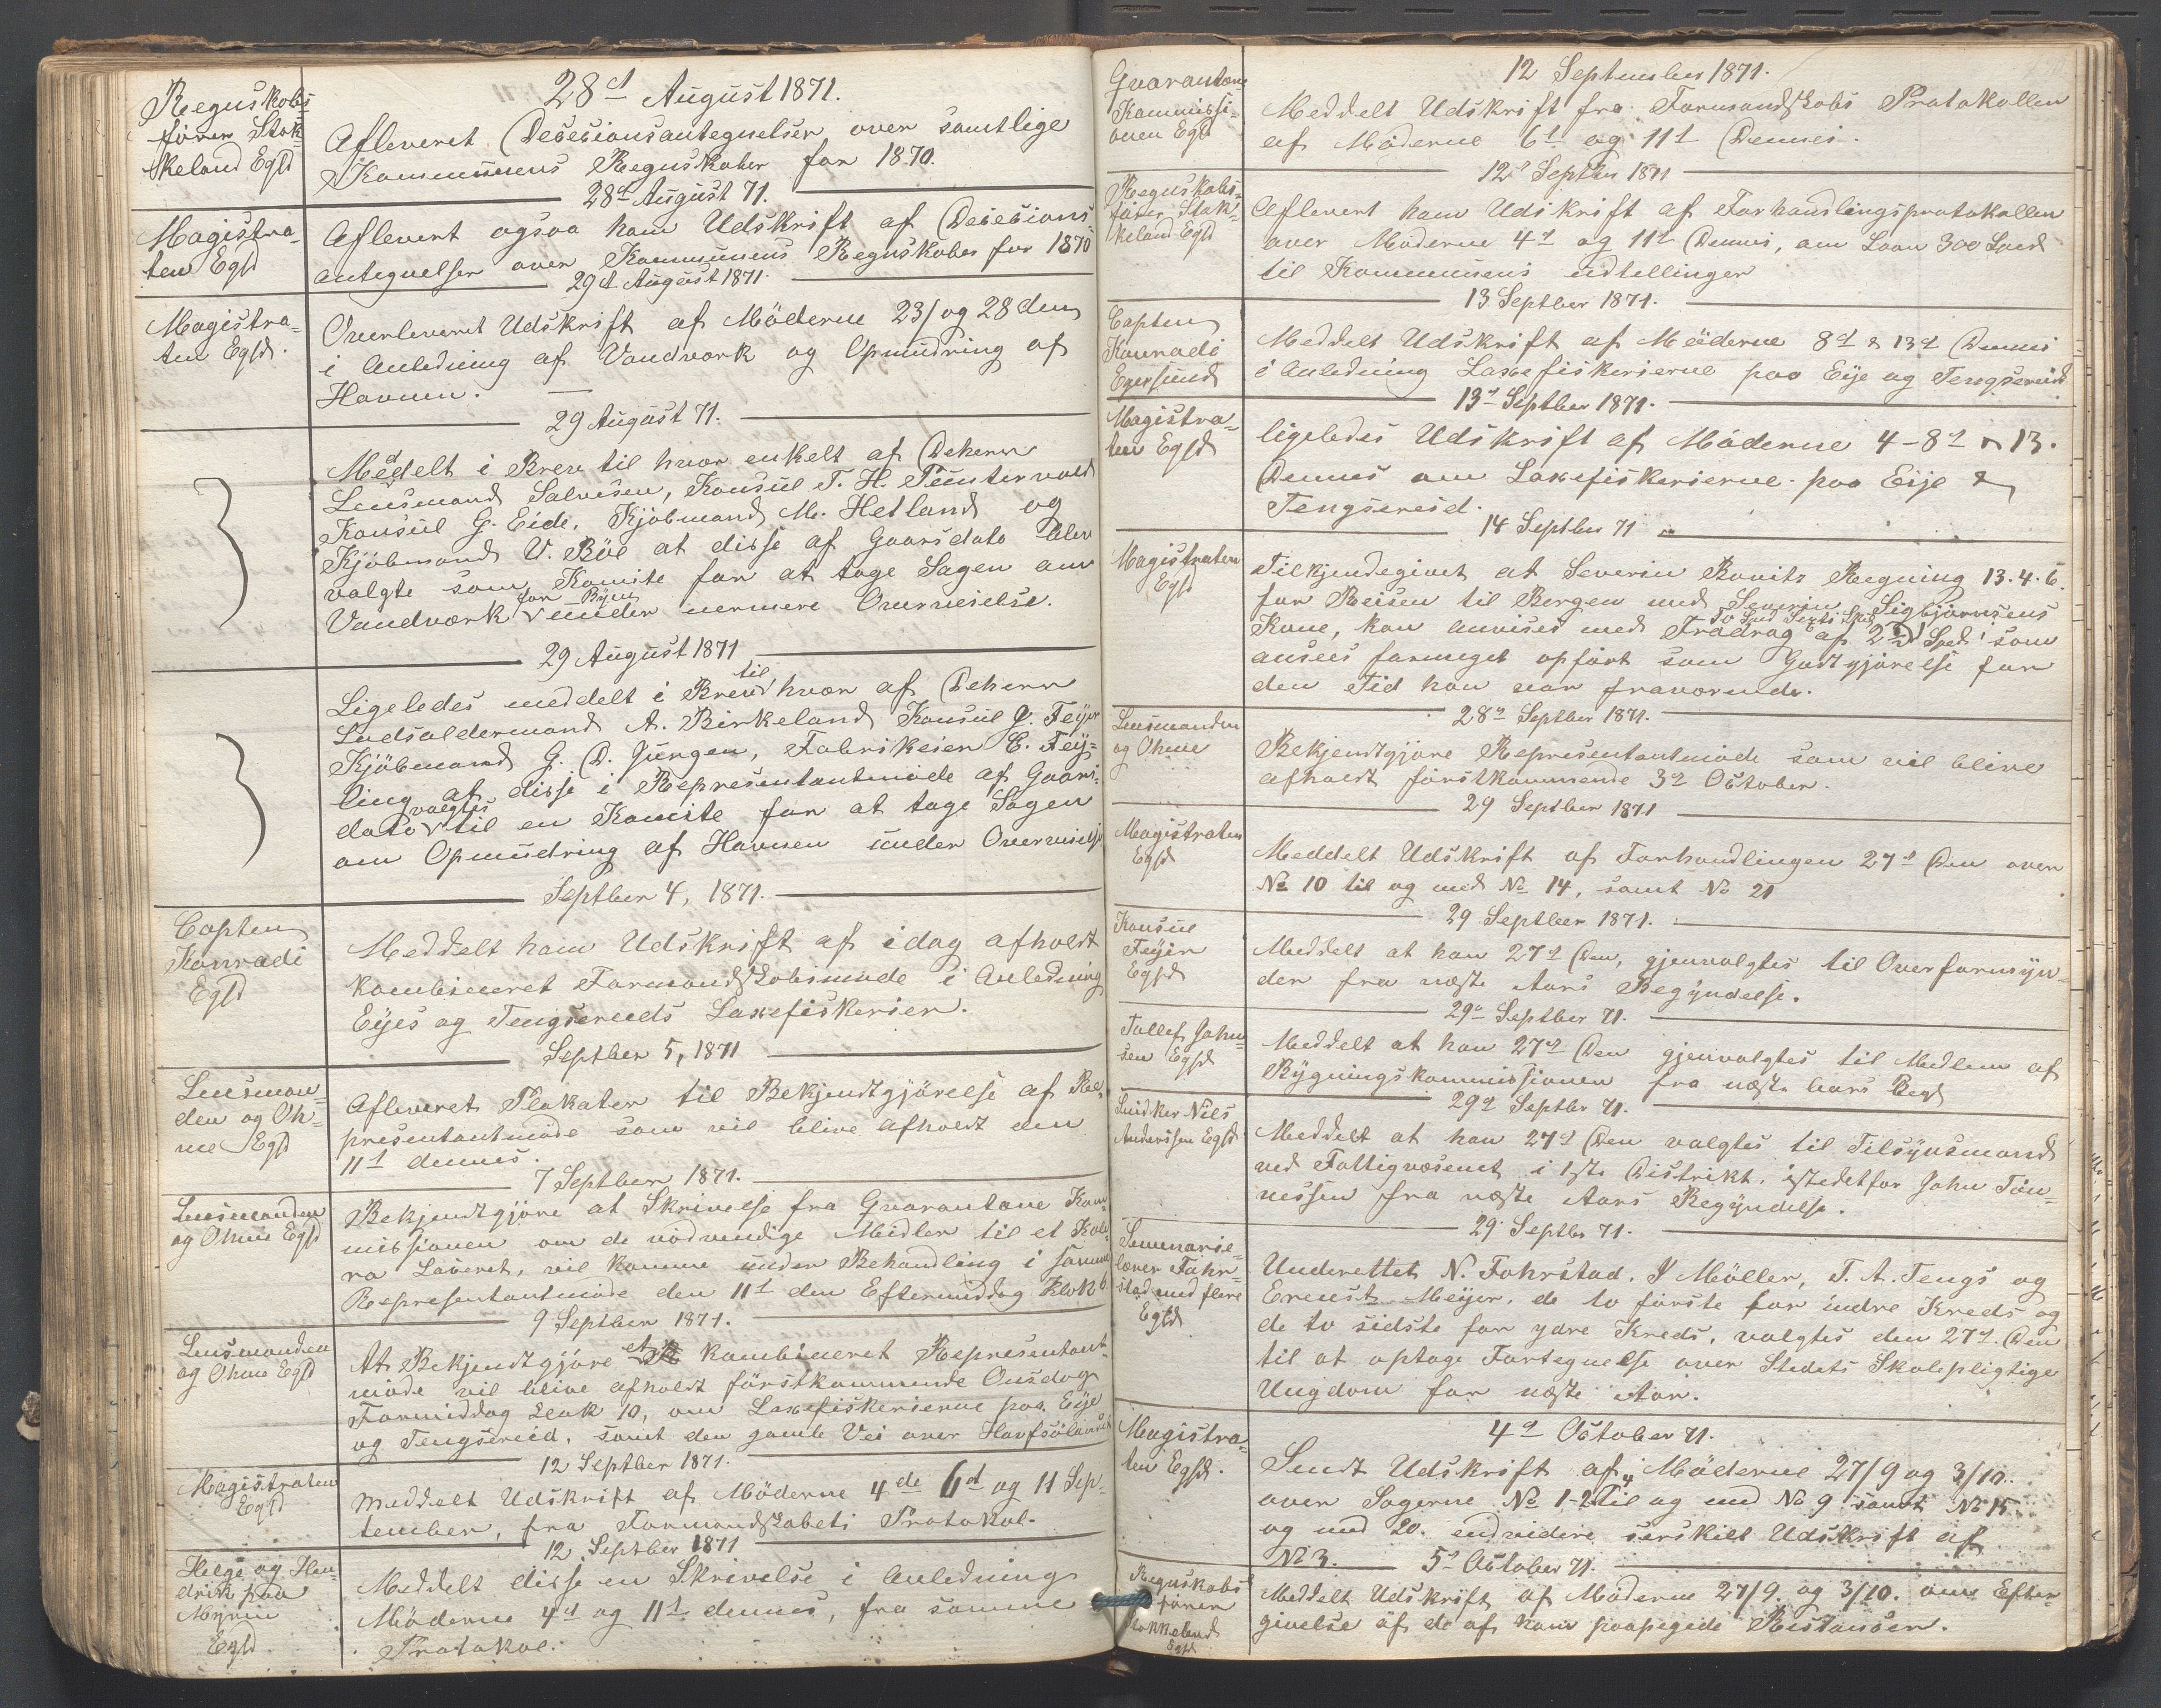 28d August 1871.
Regnskabs
fører Stok
keland Egsd
Afleveret Desesionsantegnelser over samtlige
Kommunens Regnskaber for 1870.
28d August 71.
Magistra-
ten Egsd
Aflevert ogsaa ham Udskrift af Desesions
antegnelser over Kommunens Regnskaber for 1870
29d August 1871.
Magistra-
ten Egsd.
Overleveret Udskrift af Möderne 23/ og 28 den
i Anledning af Vandværk og Opmudring af
Havnen.
29 August 71.
Meddelt i Brev til hver enkelt af Deherr
Lensmand Salvesen, Konsul T. H. Puntervold
Konsul G. Eide, Kjöbmand M. Hetland og
Kjöbmand V. Böe at disse af Gaarsdato blev
valgte som Komite for at tage Sagen om
Vandværk for Byen under nermere Overveielse.
29 August 1871
Ligeledes meddelt i Brev til hver af Deherr
Ladsoldermand A. Birkeland Konsul J. Feyer
Kjöbmand G. D. Jürgen, Fabrikeier C. Fey-
ling at disse i Representantmöde af Gaars-
dato valgtes til en Komite for at tage Sagen
om Opmudring af Havnen under Overveielse
Septber 4, 1871.
Capten
Konradi
Egsd
Meddelt ham Udskrift af idag afholdt
kombineret Formandskabsmøde i Anledning
Eyes og Tengsereids Laxefiskerier.
Septber 5, 1871
Lensman-
den og Oh-
me Egsd
Afleveret Plakater til Bekjendtgjörelse af Re-
presentantmöde som vil blive afholdt den
11t dennes.
7 Septber 1871.
Lensmanden
og Ohme Egsd
Bekjendtgjöre at Skrivelse fra Qvarantæne Kom-
missionen om de nödvendige Midler til et Kole-
ra Lazeret, vil komme under Behandling i samme
Representantmöde den 11t den Eftermiddag Klok 6.
9 Septber 1871.
Lensmanden
og Ohme Egsd
At Bekjendtgjöre et kombineret Representant-
möde vil blive afholdt förstkommende Onsdag
Formiddag Klok 10, om Laxefiskerierne paa Eye
og Tengsereid, samt den gamle Vei over
12 Septber 1871.
Magistraten
Egsd
Meddelt Udskrift af Möderne 4de 6d og 11 Sep-
tember, fra Formandskabets Protokol.
12 Septber 1871
Helge og Hen-
drik paa
Myren
Egsd
Meddelt disse en Skrivelse i Anledning
Möderne 4d og 11t dennes, fra samme
Protokol.
12 September 1871.
Qvarantæne
Kommissi-
onen Egsd
Meddelt Udskrift fra Formandskabs Protokollen
af Möderne 6t og 11t Dennes.
12t Septber 1871
Regnskabs-
förer Stok-
keland Egsd
Aflevert ham Udskrift af Forhandlingsprotokollen
over Möderne 4d og 11t Dennes, om Laan 300 Spd
til Kommunens udtellinger
13 Septber 1871.
Capten
Konradi
Egersund
Meddelt Udskrift af Möderne 8d & 13d Dennes
i Anledning Laxefiskerierne paa Eije og Tengsereid
13d Septber 1871.
Magistra-
ten Egsd
ligeledes Udskrift af Möderne 4-8d & 13.
Dennes om Laxefiskerierne paa Eije &
Tengsereid.
14 Septber 71
Magistraten
Egsd
Tilkjendegivet at Severin Bovits Regning 13.4.6.
for Reisen til Bergen med Severin Sigbjörnsens
Kone, kan anvises med Fradrag af 2 Spd som
ansees formeget opfört som Godtgjörelse for
den Tid han var fraværende.
28d Septber 1871.
Lensmanden
og Ohme
Bekjendtgjöre Representantmöde som vil blive
afholdt förstkommende 3d October.
29 Septber 1871
Magistraten
Egsd
Meddelt Udskrift af Forhandlingen 27d Den over
No 10 til og med No 14, samt No 21
29 Septber 1871.
Konsul
Feyer
Egsd
Meddelt at han 27d Den, gjenvalgtes til Overformyn-
der fra næste Aars Begyndelse.
29d Septber 71.
Tollef John-
sen Egsd
Meddelt at han 27d Den gjenvalgtes til Medlem af
Bygningskommissionen fra næste Aars Begd
29d Septbr 71.
Snidker Nils
Anderssen Egsd
Meddelt at han 27d Den valgtes til Tilsynsmand
ved Fattigvæsenet i 1ste Distrikt, istedetfor John Tön-
nessen fra næste Aars Begyndelse.
29. Septbr 71.
Semenarie-
lærer Fahr-
stad med flere
Egsd
Underettet N. Fahrstad, J Möller, T. A. Tengs og
Erenst Meyer, de to förste for indre Kreds og
de to sidste for ydre Kreds, valgtes den 27d. Den
til at optage Fortegnelse over Stedets Skolepligtige
Ungdom for næste Aar.
4d October 71.
Magistra-
ten Egsd.
Sendt Udskrift af Möderne 27/9 og 3/10.
over Sagerne No 1-2 4 Til og med No 9 samt No 15
og med 20. endvidere serskilt Udskrift af
No 3.
5t October 71.
Regnskabs
förer
Stokkeland
Egsd
Meddelt Udskrift af Möderne 27/9. og 3/10. om Efter-
givelse af de af ham paapegede Restanser.